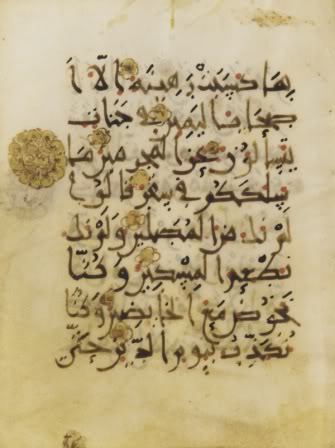 بما كسبت رهينة الا ا
صحاب اليمين في جنات
يتسالون عن المجرمين ما
سلككم في سقر قالوا
لم نك من المصلين ولم نك
نطعم المسكين وكنا
نخوض مع الخايضين وكنا
نكذب بيوم الدين حتى